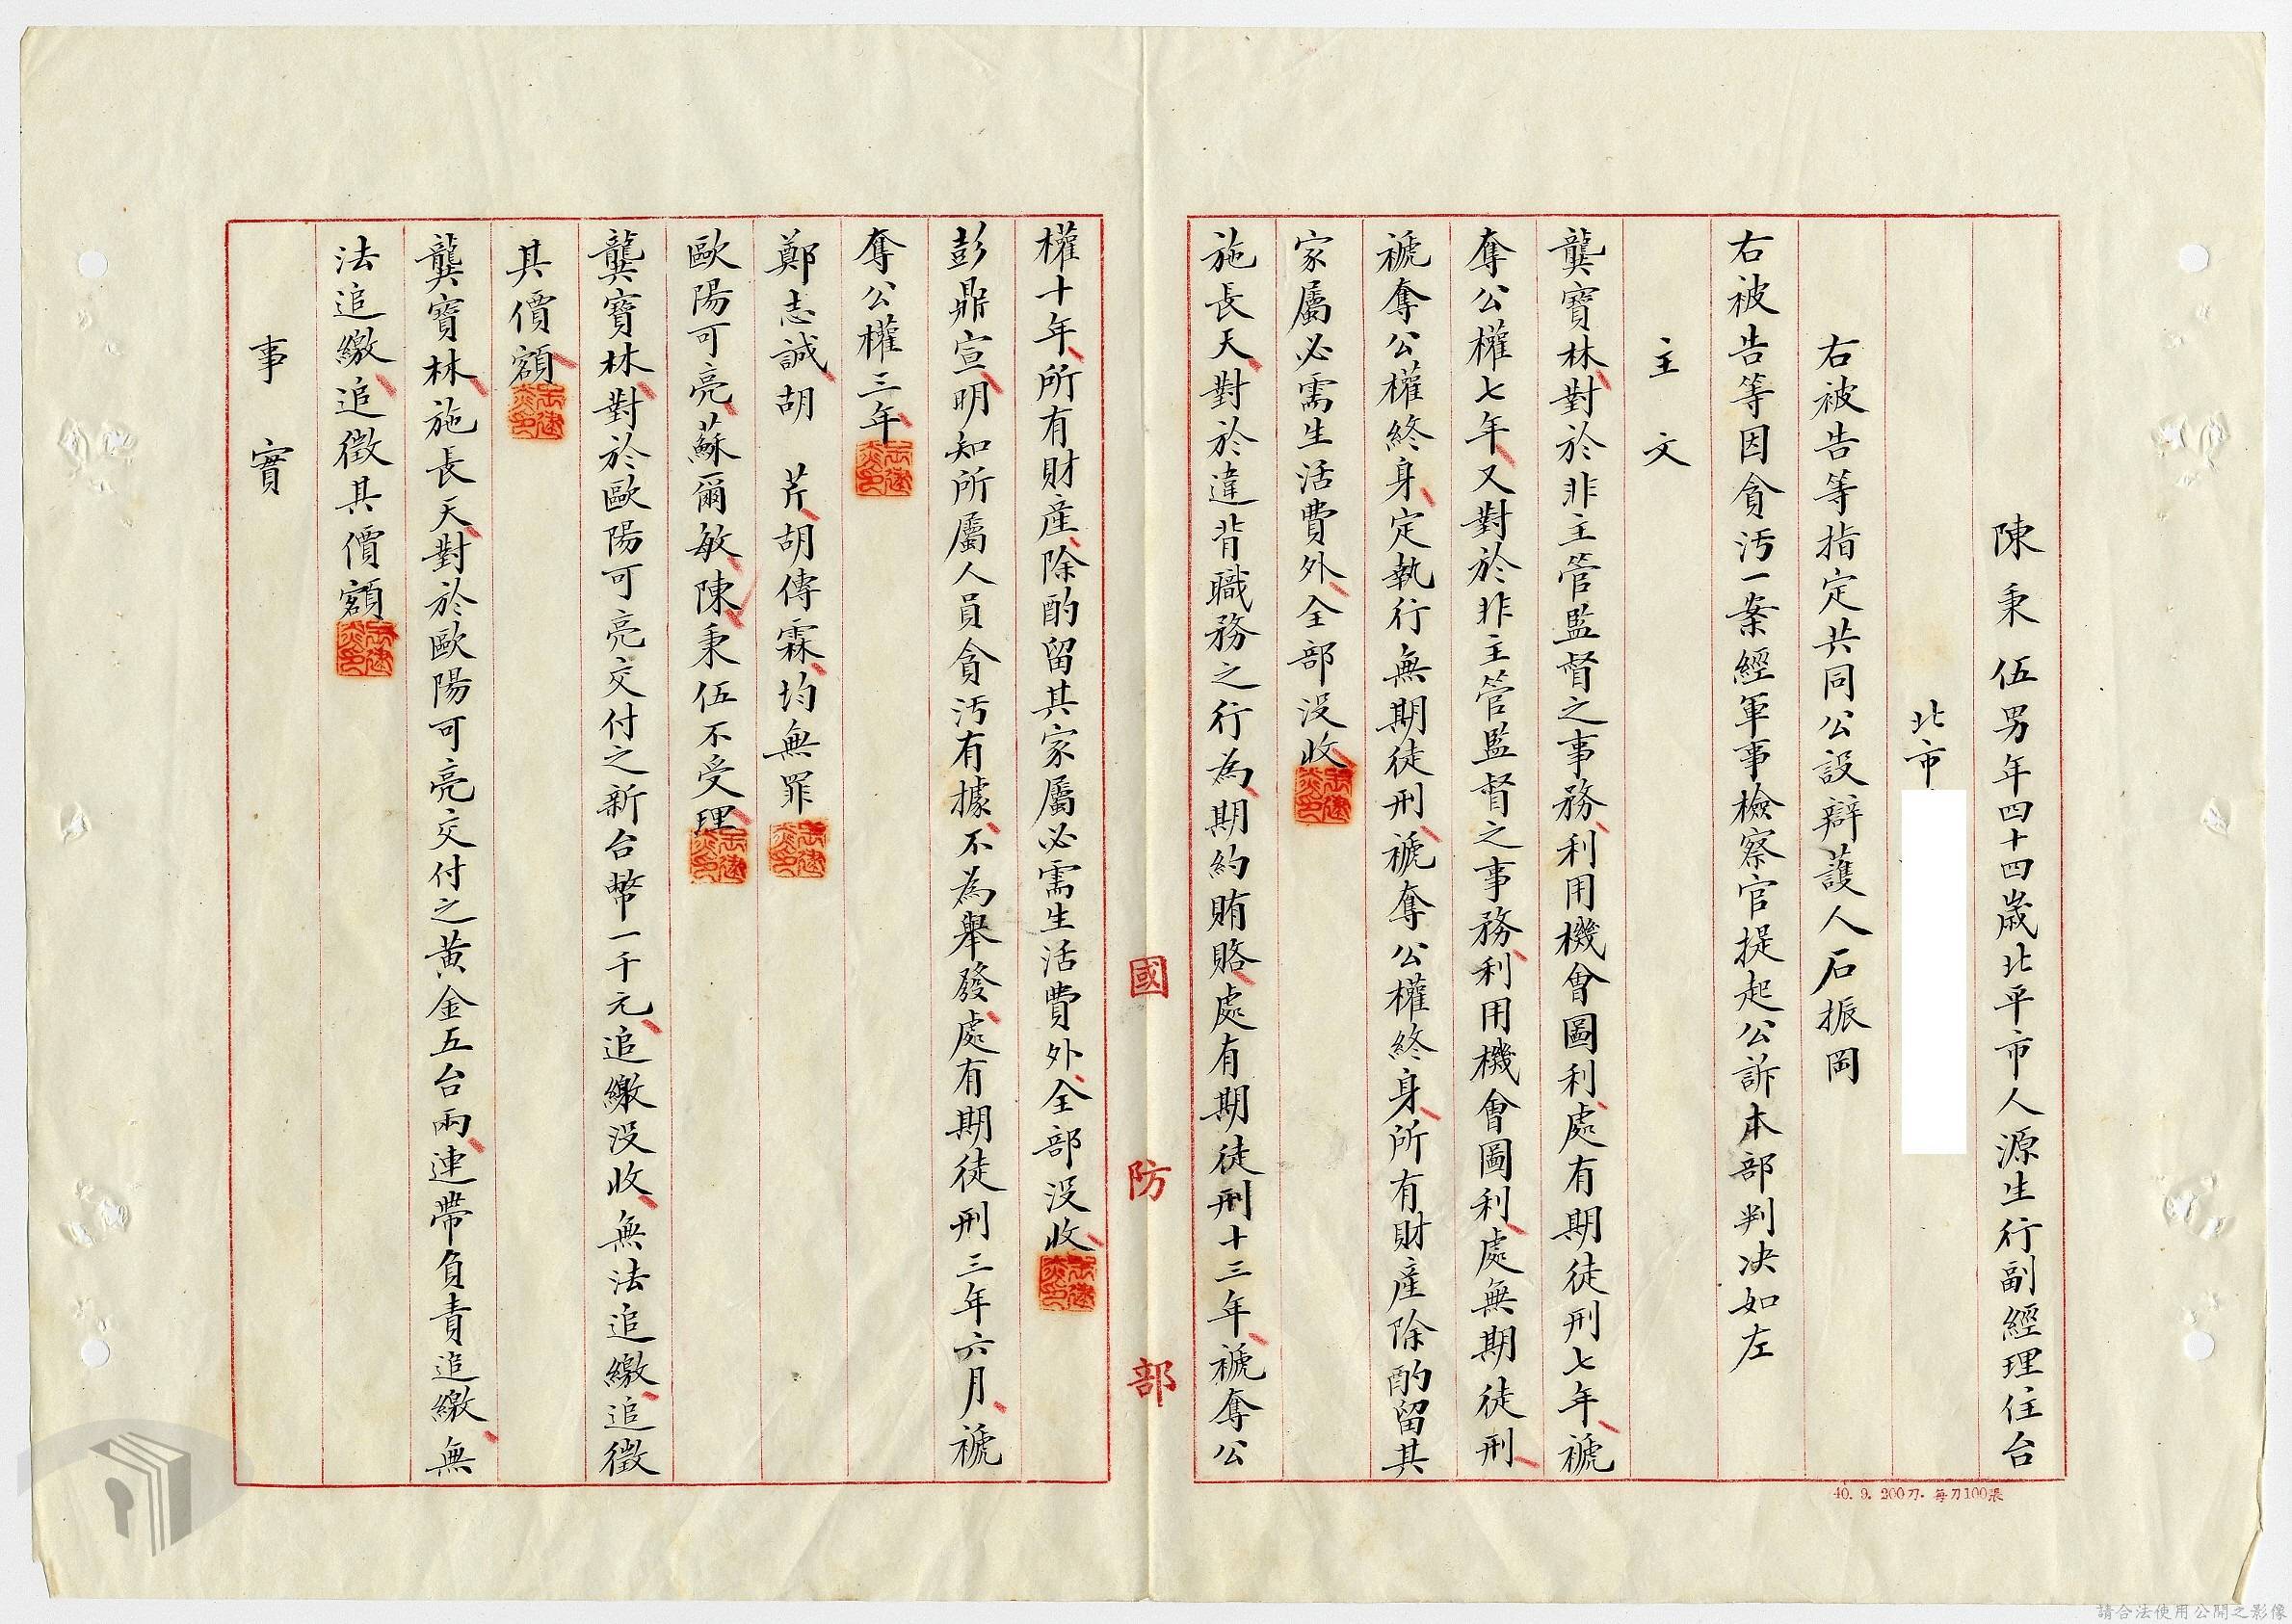 陳秉伍男年四十四歲北平市人源生行副經理住台
北市
右被告等指定共同公設辯護人石振岡
右被告等因貪污一案經軍事檢察官提起公訴本部判决如左
主文
龔寶林、對於非主管監督之事務、利用機會圖利、處有期徒刑七年、褫
奪公權七年、又對於非主管監督之事務、利用機會圖利、處無期徒刑、
褫奪公權終身、定執行無期徒刑、褫奪公權終身、所有財產除酌留其
家屬必需生活費外、全部沒收、
施長天、對於違背職務之行為、期約賄賂、處有期徒刑十三年、褫奪公
國防部
權十年、所有財產、除酌留其家屬必需生活費外、全部沒收、
彭鼎宣、明知所屬人員貪污有據、不為舉發、處有期徒刑三年六月、褫
奪公權三年、
鄭志誠、胡 芹、胡傳霖、均無罪
歐陽可亮、蘇爾敏、陳秉伍不受理、
龔寶林、對於歐陽可亮交付之新台幣一千元、追繳沒收、無法追繳、追徵
其價額、
龔寶林、施長天、對於歐陽可亮交付之黃金五台兩、連帶負責追繳、無
法追繳、追徵其價額
事實
40. 9. 200刀. 每刀100張
請合法使用公開之影像